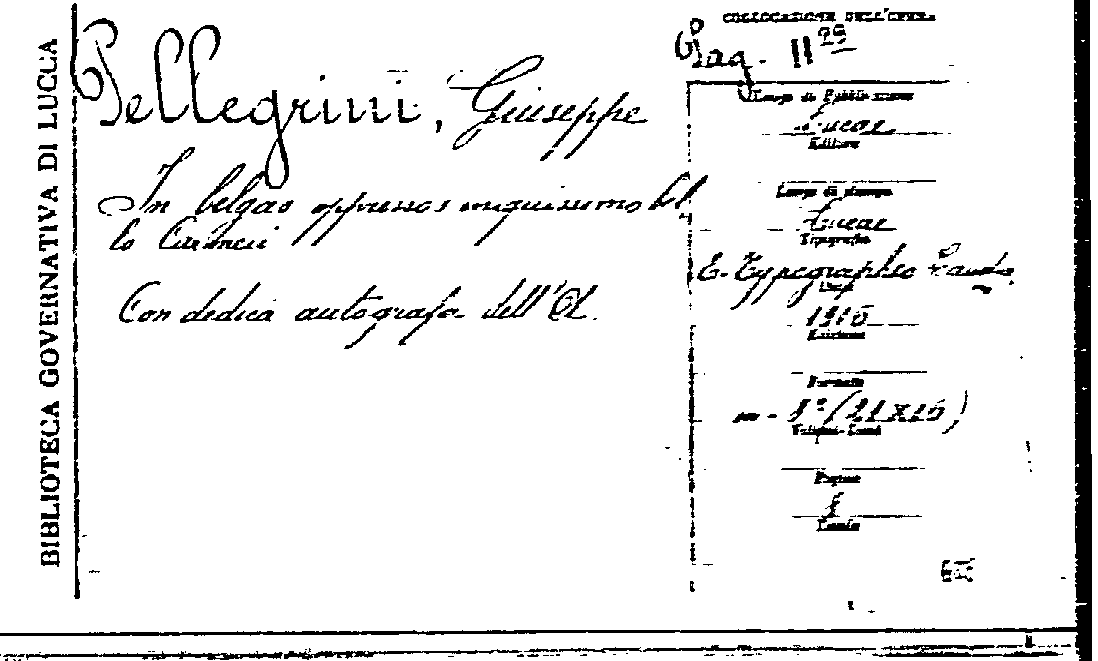 BIBLIOTECA GOVERNATIVA DI LUCCA
Pellegrini, Giuseppe
In belgas oppressos iniquissimo bel
lo Carmen
Con dedica autografa dell'A.
COLLOCAZIONE DELL'OPERA
29
Luogo di Pubblicazione
Lucae
Editore
Luogo di stampa
Lucae
Tipografia
E. Typographio
Data
Edizione
Formato
Volumi-Tomi
Pagine
8